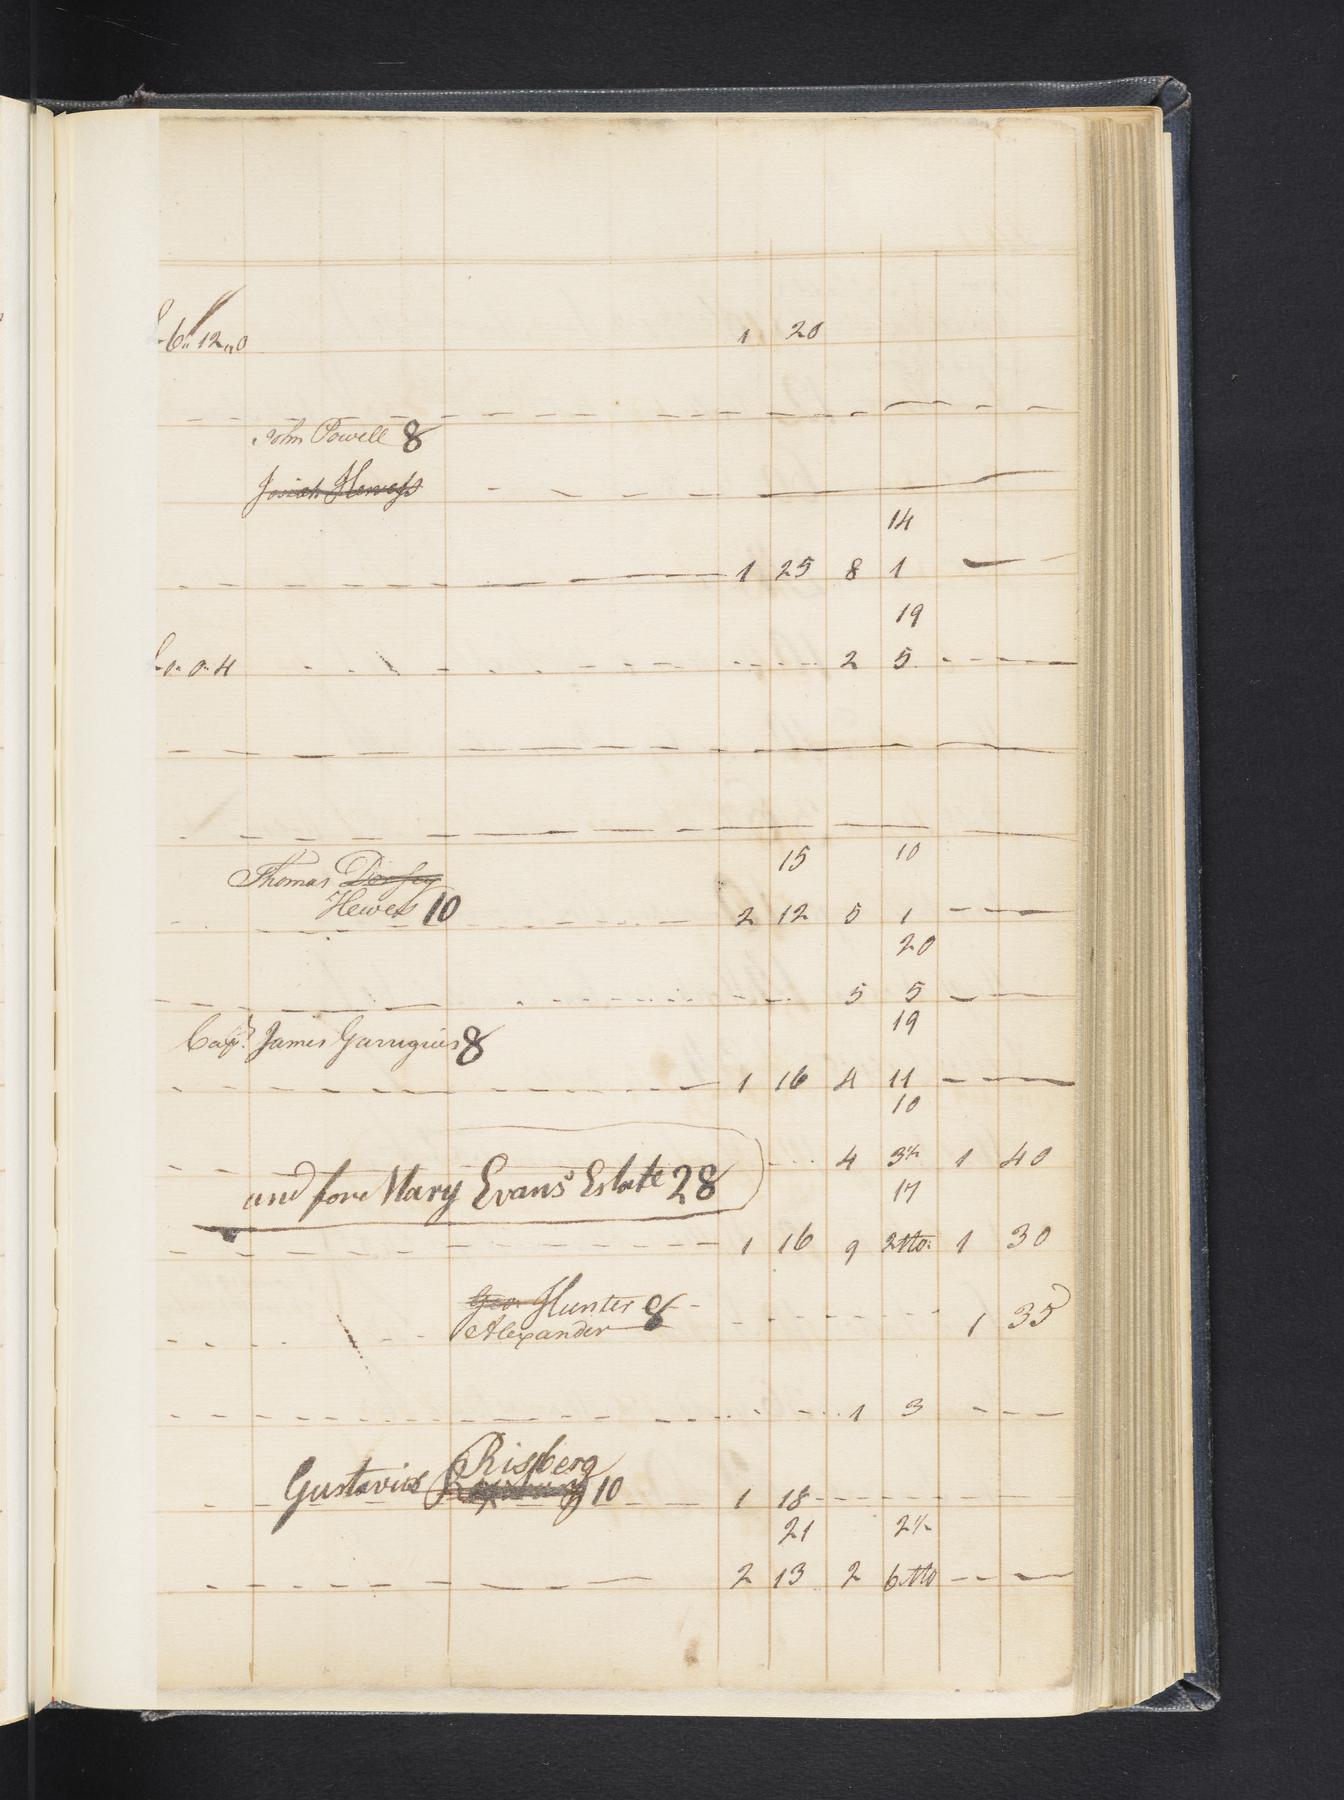 6" 12" 0 1 20
John Powell 8
Josiah Hewess
14
1 25 8 1
19
0 4 2 5
15 10
Thomas Dorsey
Hewes 10 2 12 5 1
20
5 5
19
Capt. James Garrigues 8
1 16 4 11
10
4 3 1 40
and for Mary Evans' Estate 28
17
1 16 9 2 Mo: 1 30
Geo. Hunter 8
Alexander 1 35
1 3
Risberg
Gustavus 10 1 18
21 2½
2 13 2 6 Mo